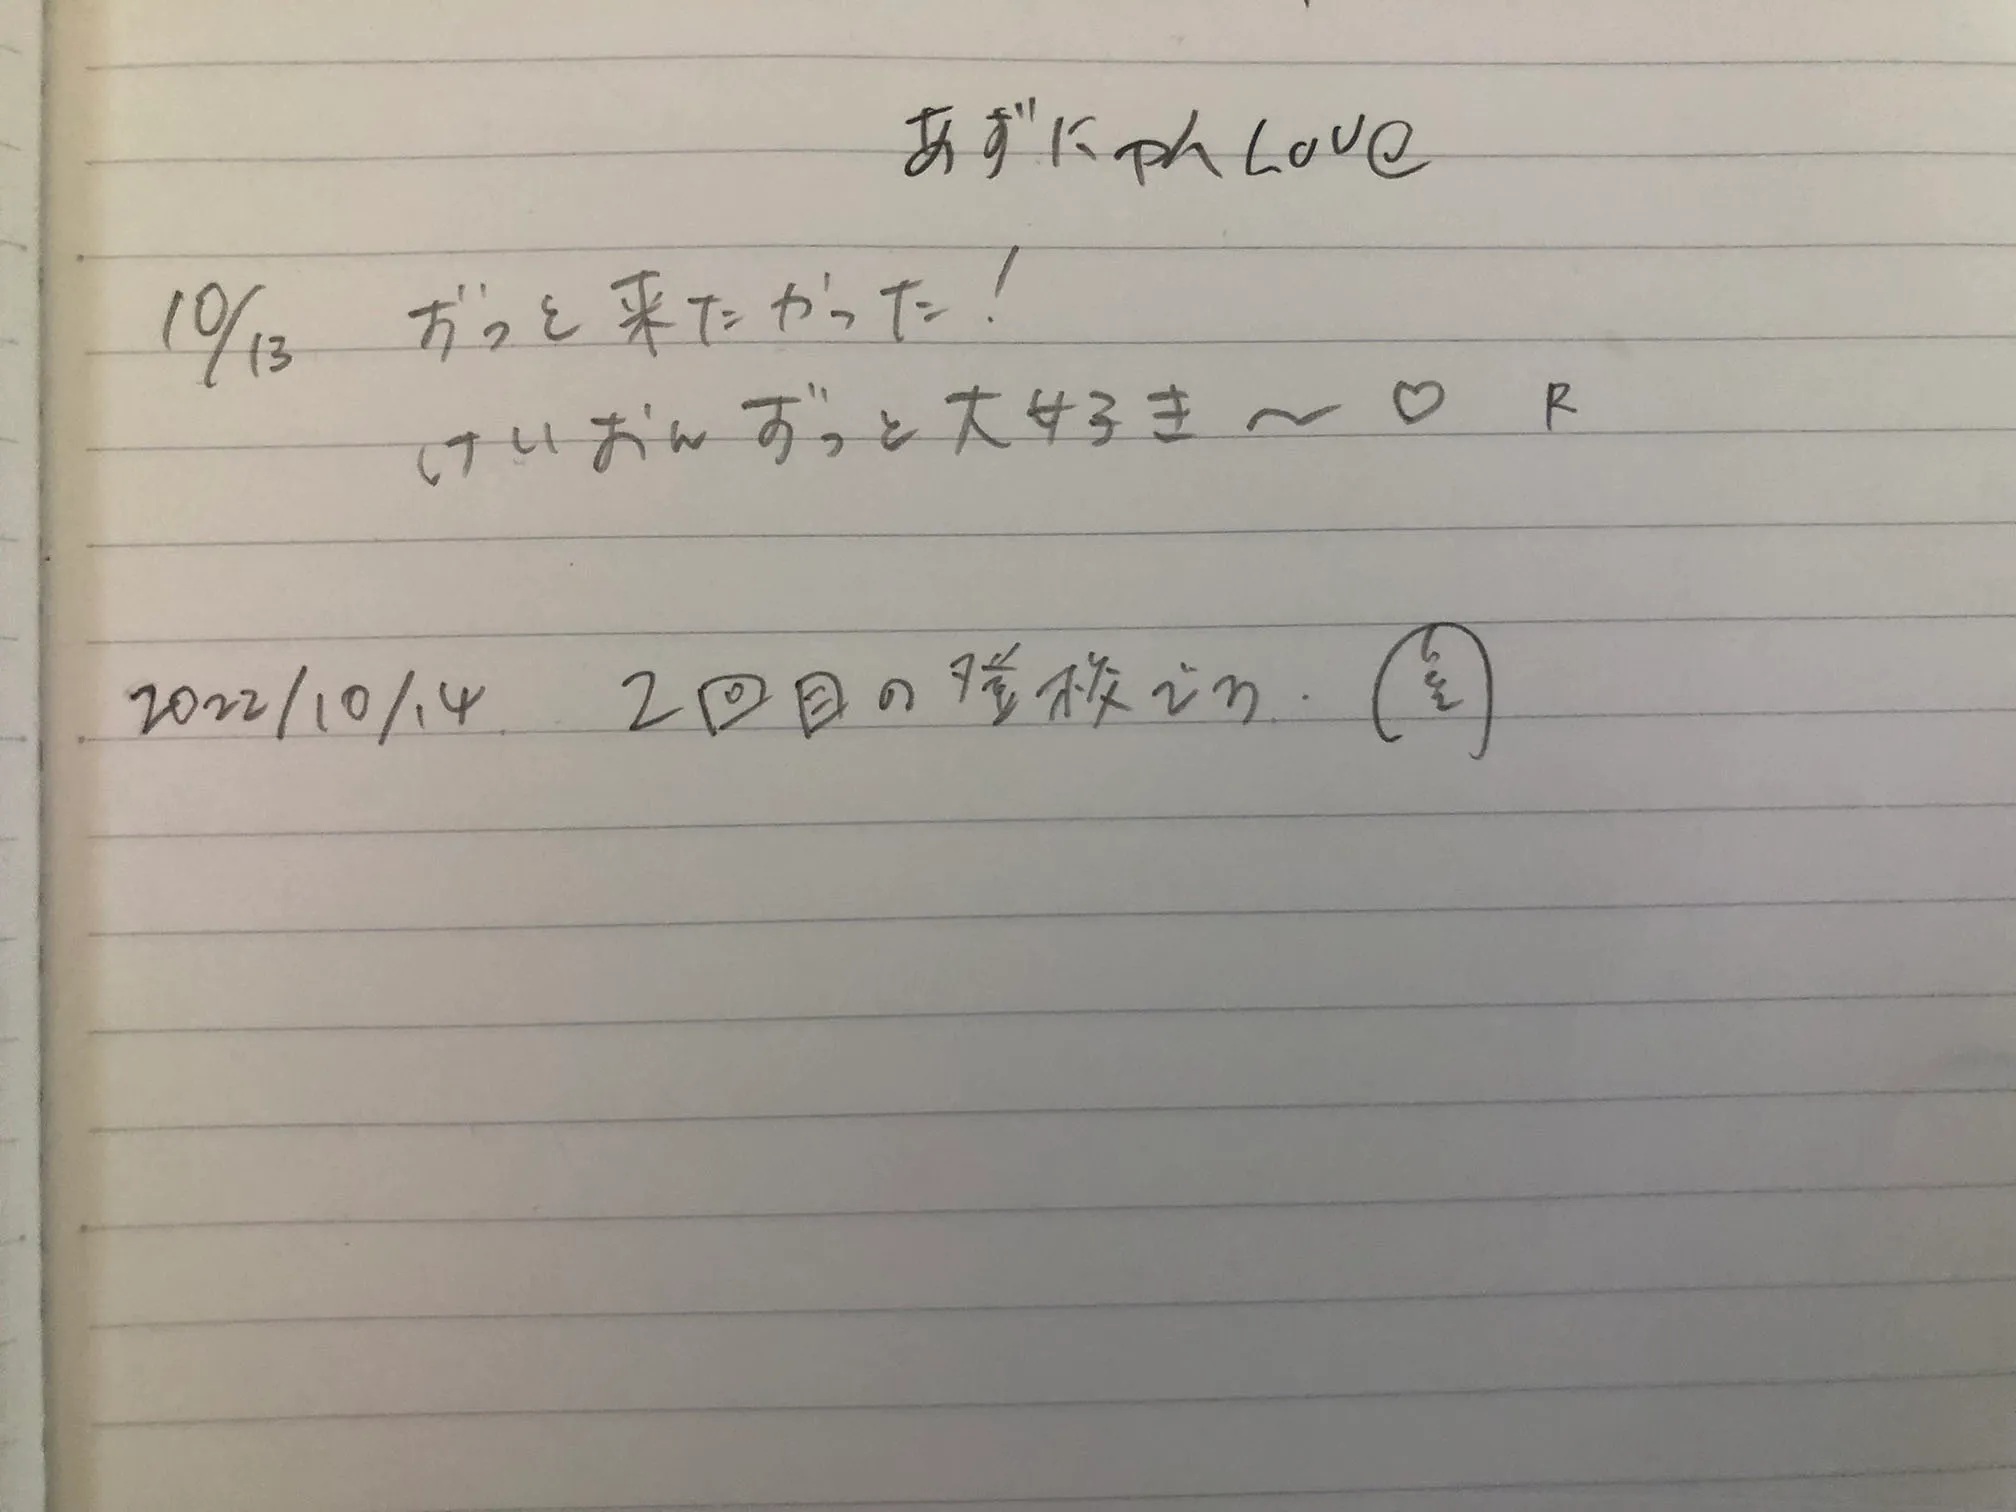 あずにゃん LOVE
10/13 ずっと来たかった!
けいおんずっと大好き〜♡ R
2022/10/14 2回目の登校です.